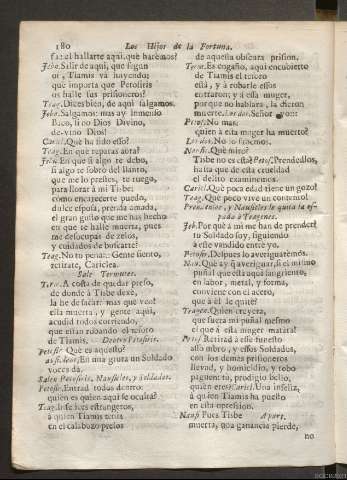 180 Los Hijos de la Fortuna.
faz el hallarte aqui, què harèmos?
Salir de aqui, que segun
oì, Tiamis và huyendo;
què importa que Petosiris
os halle sus prisioneros?
Teag. Dices bien, de aqui salgamos.
Salgamos: mas ay inmenso
Baco, si no Dios Divino,
de-vino Dios!
Caricl. Què ha sido esso?
Teag. En què reparas aora?
En que si algo te debo,
si algo te sobrò del llanto,
que me lo prestes, te ruego,
para llorar à mi Tisbe:
como encarecerte puedo,
dulce esposa, prenda amada,
el gran gusto que me has hecho
en que te halle muerta, pues
me desocupas de zelos,
y cuidados de buscarte?
Teag. No tu pena. Gente siento,
retirate, Cariclea.
Sale Termutes.
Term. A costa de quedar preso,
de donde à Tisbe dexè,
la he de sacar: mas què veo!
ella muerta, y gente aqui,
acudid todos corriendo,
que estàn robando el tesoro
de Tiamis. Dentro Petosiris.
Petosir. Què es aquesto?
Dent. Soldad. En una gruta un Soldado
voces dà.
Salen Petosiris, Nausicles, y Soldados.
Petosir. Entrad todos dentro:
quien es quien aqui se oculta?
Teag. Infelices estrangeros,
à quien Tiamis tenia
en el calabozo presos
de aquessa obscura prision.
Term. Es engaño, aqui encubierto
de Tiamis el tesoro
està, y à robarle essos
entraron; y à essa muger,
porque no hablàra, la dieron
muerte. Los dos. Señor yo::
Petos. No mas:
quien à esta muger ha muerto?
Los dos. No lo sabemos.
Nausic. Què miro?
Tisbe no es esta? Petos. Prendedlos,
hasta que de esta crueldad
el delito examinemos.
Caricl. Què poca edad tiene un gozo!
Teag. Què poco vive un contento!
Prendenlos, y Nausicles le quita la espada
à Teagenes.
Por què à mì me han de prender?
tu Soldado soy, siguiendo
à este vandido entrè yo.
Petosir. Despues lo averiguarèmos.
Naus. Què ay q̃ averiguar, si el mismo
puñal que està aqui sangriento,
en labor, metal, y forma,
conviene con el acero,
que à èl le quitè?
Teagen. Quien creyera,
que fuera mi puñal mesmo
el que à esta muger matàra!
Petos. Retirad à esse funesto
assombro, y essos Soldados,
con los demàs prisioneros
llevad, y homicidio, y robo
paguen: tù, prodigio bello,
quien eres? Caricl. Una infeliz,
à quien Tiamis ha puesto
en esta opression.
Naus. Pues Tisbe Apart.
muerta, una ganancia pierde,
no